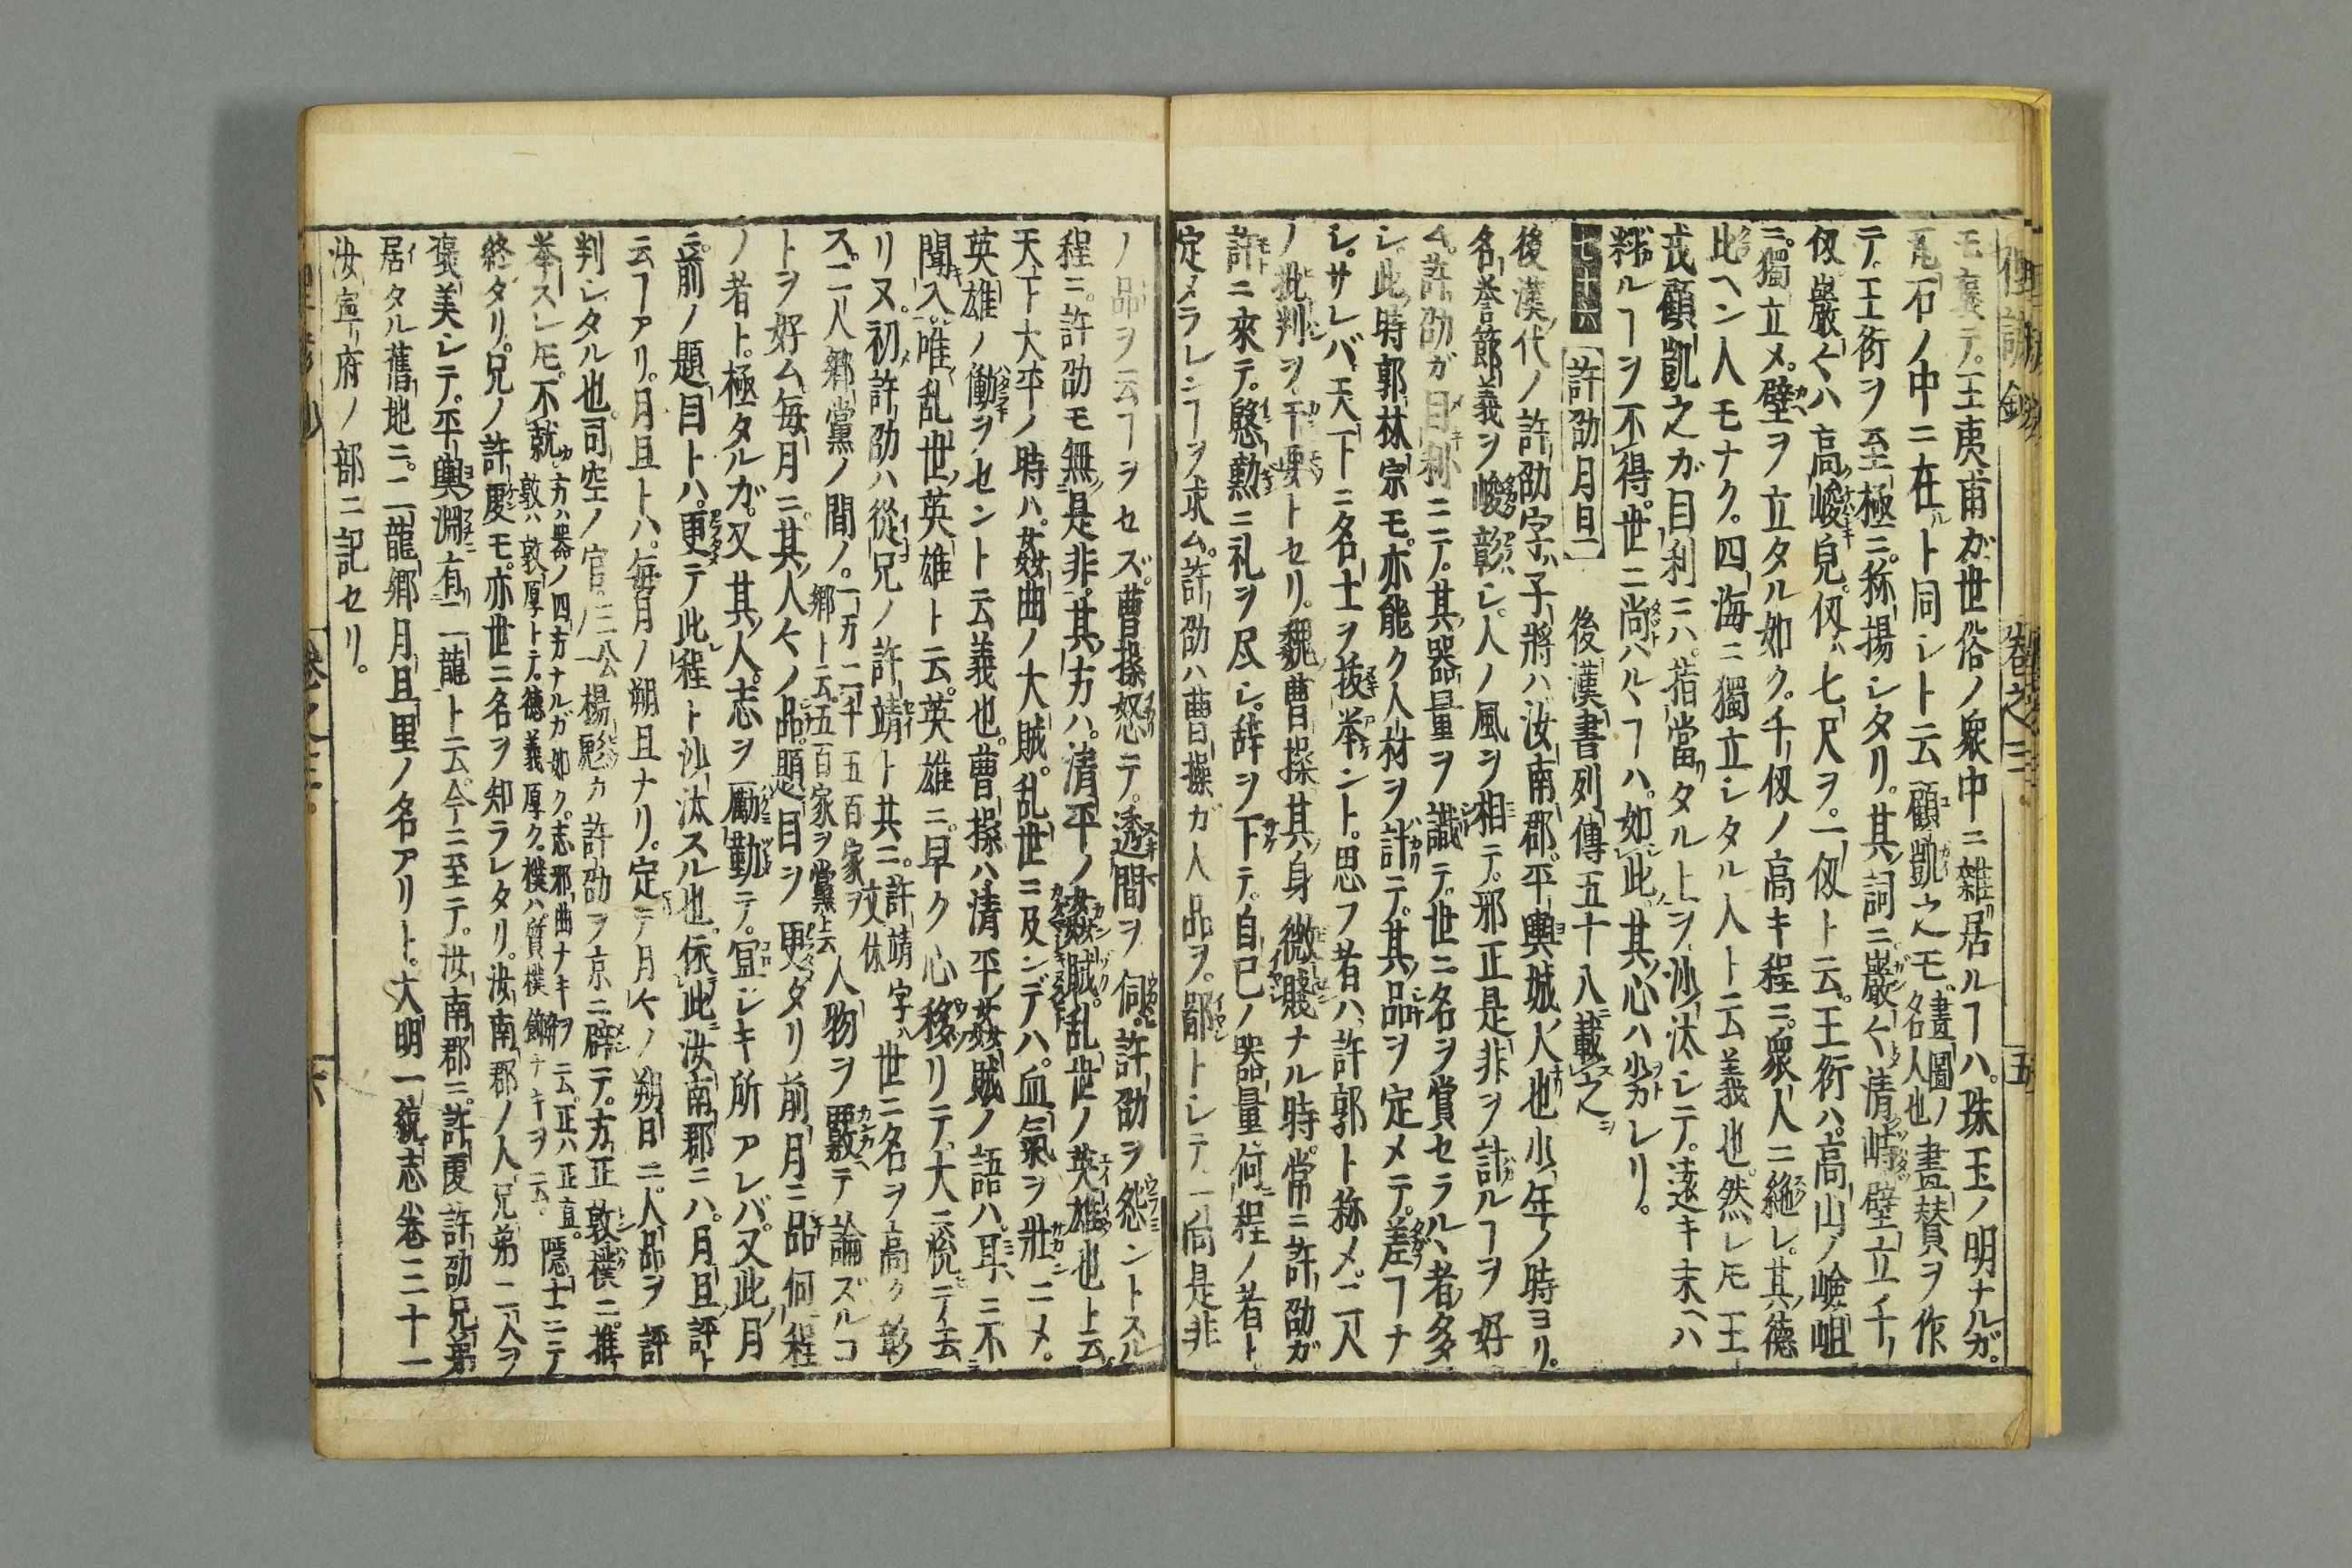 モ褒テ。王夷甫ガ世俗ノ衆中ニ雑居ルヿハ。珠玉ノ明ナルガ。
瓦石ノ中ニ在ルト同シト云顧凱之モ。畫圖ノ名人也畫賛ヲ作
テ王衍ヲ至極ニ。称揚シタリ。其詞ニ巖々清峙壁立千
仭巖々ハ高峻皃。仭ハ七尺ヲ。一仭ト云。王衍ハ。高山ノ嶮岨
ニ。獨立メ。壁ヲ立タル如ク。千仭ノ高キ程ニ。衆人ニ絶レ。其德
比ヘン人モナク。四海ニ獨立シタル人ト云義也。然レ𪜈王
戎顧凱之ガ目利ニハ。指當タル上ヲ沙汰シテ。遠キ末ヘハ
ルヿヲ不得。世ニ尚ハルヽヿハ。如此。其心ハ劣レリ。
七十六 許劭月旦 後漢書列傳五十八載之
後漢代ノ許劭字ハ子將ハ汝南郡。平輿城ノ人也少年ノ時ヨリ。
名誉節義ヲ峻彰シ。人ノ風ヲ相テ。邪正是非ヲ計ルヿヲ好
ム。許劭ガ目利ニテ。其器量ヲ識テ。世ニ名ヲ賞セラルヽ者多
シ。此時郭林宗モ。亦能ク人材ヲ計テ。其品ヲ定メテ。差ヿナ
シ。サレバ天下ニ名士ヲ抜挙ント。思フ者ハ許郭ト称メ。二人
ノ批判ヲ。干要トセリ。魏曹操其身微賤ナル時。常ニ許劭ガ
許ニ來テ。慇懃ニ礼ヲ尽シ。辞ヲ下テ。自己ノ器量何程ノ者ト
定メラレンヿヲ求ム。許劭ハ曹操ガ人品ヲ。鄙トシテ一向是非
ノ品ヲ云ヿヲセズ。曹操怒テ。透間ヲ伺。許劭ヲ怨ントスル
程ニ。許劭モ無是非。其方ハ。清平ノ姦賊。乱世ノ英雄也ト云。
天下大平ノ時ハ。姦曲ノ大賊。乱世ニ及ンデハ。血氣ヲ壯ニメ。
英雄ノ働ヲセント云義也。曹操ハ清平姦賊ノ語ハ。耳ニ不
聞入。唯乱世英雄ト云。英雄ニ。早ク心移リテ。大ニ悦ニテ去
リヌ。初許劭ハ從兄ノ許靖ト共ニ。許靖字ハ文休世ニ名ヲ高ク彰
ス。二人郷黨ノ間ノ。一万二千五百家ヲ郷ト云。五百家ヲ黨ト云人物ヲ覈テ論ズルコ
トヲ好ム毎月ニ。其人々ノ品題目ヲ更タリ前月ニ品何程
ノ者ト。極タルガ。又其人。志ヲ勵勤テ。宜シキ所アレバ。又此月
ニ。前ノ題目トハ。更テ此程ト沙汰スル也。依此汝南郡ニハ。月旦評ト
云ヿアリ。月旦トハ。毎月ノ朔旦ナリ。定テ月々ノ朔日ニ。人品ヲ評
判シタル也。司空ノ官三公ノ一楊彪カ許劭ヲ京ニ辟テ。方正敦樸ニ推
挙スレ𪜈。不就方ハ器ノ四方ナルガ如ク。志邪曲ナキヲ云。正ハ正直。敦ハ敦厚トテ。德義厚ク。樸ハ質樸餝ナキヲ云。隱士ニテ
終タリ。兄ノ許虔モ。亦世ニ名ヲ知ラレタリ。汝南郡ノ人兄弟二人ヲ
褒美シテ。平輿淵有二龍ト云。今ニ至テ。汝南郡ニ。許虔許劭兄弟
居タル舊地ニ。二龍郷月旦里ノ名アリト。大明一統志卷三十一
汝寧府ノ部ニ記セリ。